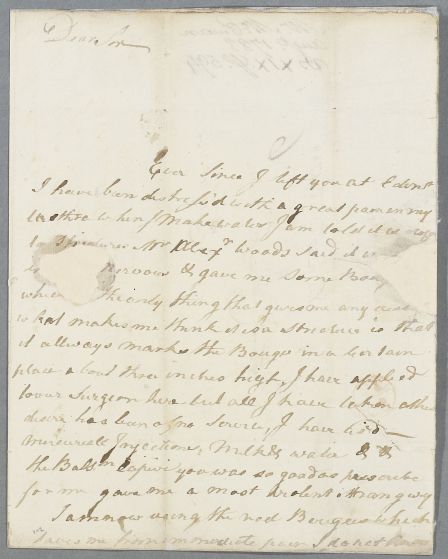 Dear Sir
Ever Since I left you at Edinr
I have been distress'd with a great pain in my
Urethra when I Make water I am told it is owing
to Strictures Mr Alexr Woods said it was
nervous & gave me Some Boug
which the only thing that gives me any ease
what makes me think it is a stricture is that
it allways marks the Bougee in a Certain
place about three inches high, I have applied
to our Surgeon here but all I have taken
has been of no Service, I have tried
mercureall Injections, Milk & water & &
the Balsm Capive you was so good as prescribe
for me gave me a most violent strangwry
I am now using the red Bougees which
Saves me from immediate pain I do not know